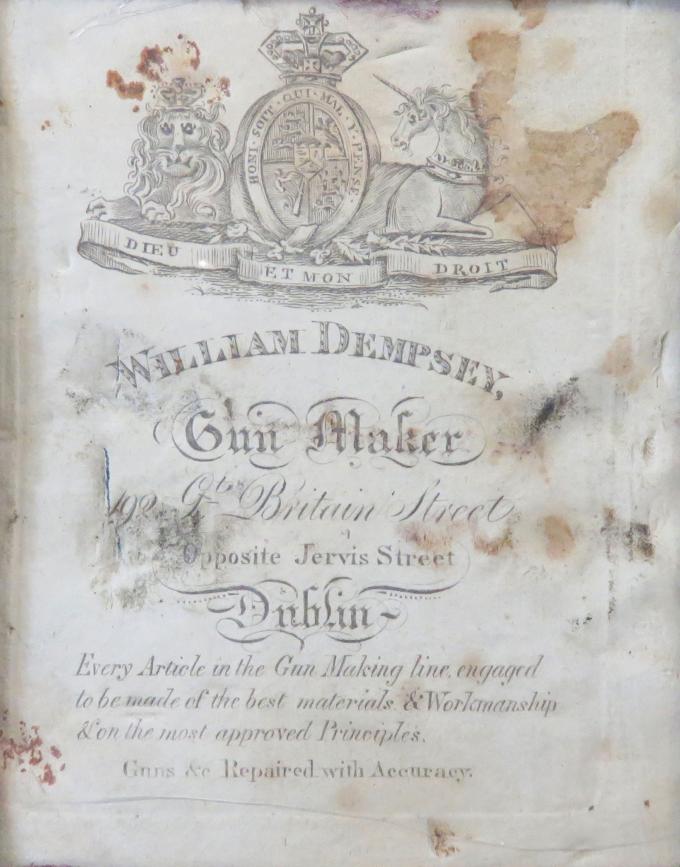 HONI · SOIT · QUI · MAL · Y · PENSE
DIEU ET MON DROIT
WILLIAM DEMPSEY,
Gun Maker
Gt. Britain Street
Opposite Jervis Street
Dublin
Every Article in the Gun Making line, engaged
to be made of the best materials, & Workmanship
& on the most approved Principles.
Guns &c Repaired with Accuracy.